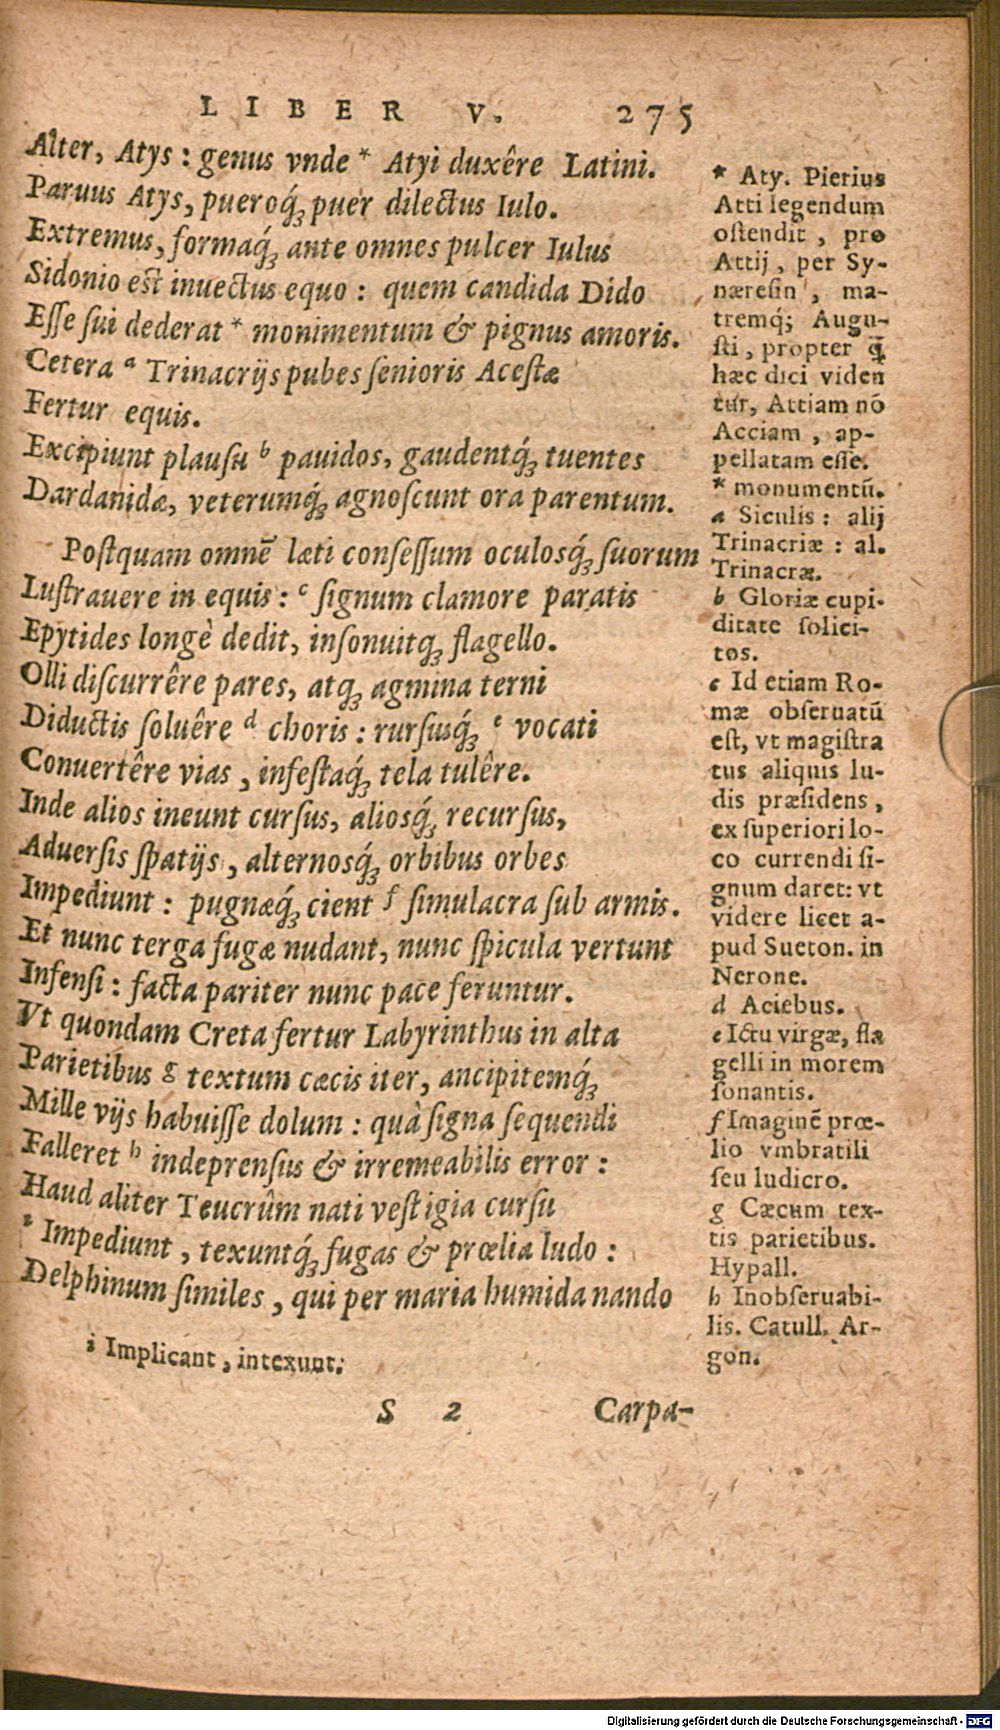 LIBER V. 275
Alter, Atys : genus vnde * Atyi duxêre Latini.
Paruus Atys, pueroq́ꝫ puer dilectus Iulo.
Extremus, formaq́ꝫ ante omnes pulcer Iulus
Sidonio est inuectus equo : quem candida Dido
Eſſe ſui dederat * monimentum & pignus amoris.
Cetera a Trinacrijs pubes ſenioris Aceſtæ
Fertur equis.
Excipiunt plauſu b pauidos, gaudentq́ꝫ tuentes
Dardanidæ, veterumq́ꝫ agnoſcunt ora parentum.
Poſtquam omnē læti conſeſſum oculosq́ꝫ ſuorum
Luſtrauere in equis : c ſignum clamore paratis
Epytides longè dedit, inſonuitqꝫ flagello.
Olli diſcurrêre pares, atqꝫ agmina terni
Diductis ſoluêre d choris : rurſusq́ꝫ e vocati
Conuertêre vias, infeſtaq́ꝫ tela tulêre.
Inde alios ineunt curſus, aliosq́ꝫ recurſus,
Aduerſis ſpatijs, alternosq́ꝫ orbibus orbes
Impediunt : pugnæq́ꝫ cient f ſimulacra ſub armis.
Et nunc terga fugæ nudant, nunc ſpicula vertunt
Infenſi : facta pariter nunc pace feruntur.
Vt quondam Creta fertur Labyrinthus in alta
Parietibus g textum cæcis iter, ancipitemq́ꝫ
Mille vijs habuiſſe dolum : quà ſigna ſequendi
Falleret h indeprenſus & irremeabilis error :
Haud aliter Teucrûm nati veſtigia curſu
i Impediunt, texuntq́ꝫ fugas & prœlia ludo :
Delphinum ſimiles, qui per maria humida nando
* Aty. Pierius
Atti legendum
oſtendit, pro
Attij, per Sy-
næreſin, ma-
tremq́; Augu-
ſti, propter q̃
hæc dici viden
tur, Attiam nō
Acciam, ap-
pellatam eſſe.
* monumentū.
a Siculis : alij
Trinacriæ : al.
Trinacræ.
b Gloriæ cupi-
ditate ſolici-
tos.
c Id etiam Ro-
mæ obſeruatū
eſt, vt magiſtra
tus aliquis lu-
dis præſidens,
ex ſuperiori lo-
co currendi ſi-
gnum daret: vt
videre licet a-
pud Sueton. in
Nerone.
d Aciebus.
e Ictu virgæ, fla
gelli in morem
ſonantis.
f Imaginē prœ-
lio vmbratili
ſeu ludicro.
g Cæcum tex-
tis parietibus.
Hypall.
h Inobſeruabi-
lis. Catull. Ar-
gon.
i Implicant, intexunt.
S 2 Carpa-
Digitalisierung gefördert durch die Deutsche Forschungsgemeinschaft - DFG